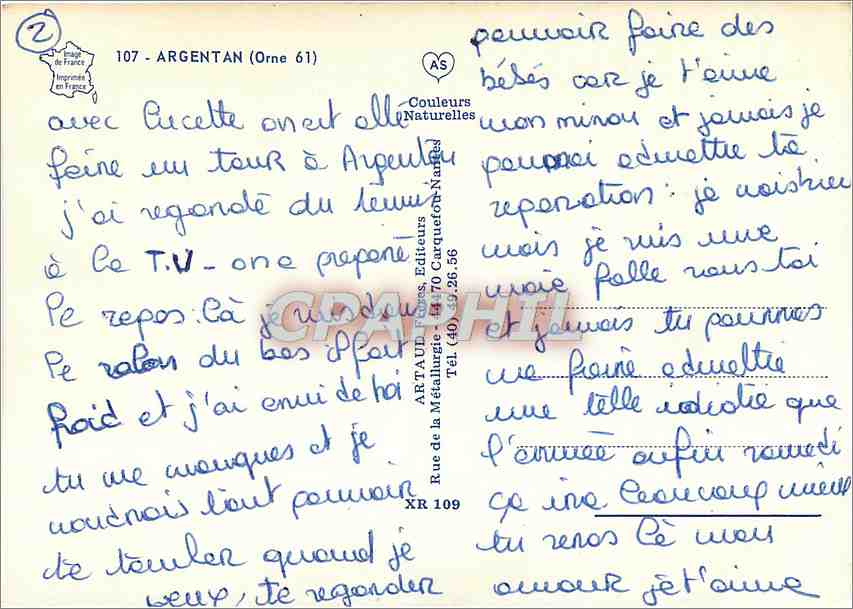 2
Image
de France
Imprimée
en France
107 - ARGENTAN (Orne 61)
AS
Couleurs
Naturelles
avec Lucette on est allé
faire un tour à Argentan
j'ai regardé du tennis
à la T.V - on a préparé
le repos. Là je suis dans
le salon du bas il fait
froid et j'ai envie de toi
tu me manques et je
voudrais tant pouvoir
te tomber quand je
veux, te regarder
ARTAUD Frères, Editeurs
Rue de la Métallurgie - 44470 Carquefou-Nantes
Tél. (40) 49.26.56
XR 109
CPAPHIL
pouvoir faire des
bébés car je t'aime
mon minou et jamais je
pourrai admettre ta
reparation: je
mais je suis une
vraie folle sans toi
et jamais tu pourras
me faire admettre
une telle idiotie que
l'armée enfin samedi
ça ira beaucoup mieux
tu seras là mon
amour je t'aime